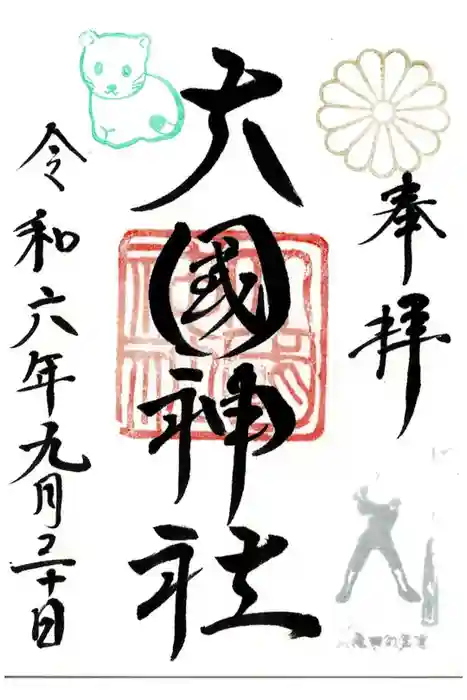 奉拝
大國神社
令和六年九月三十日